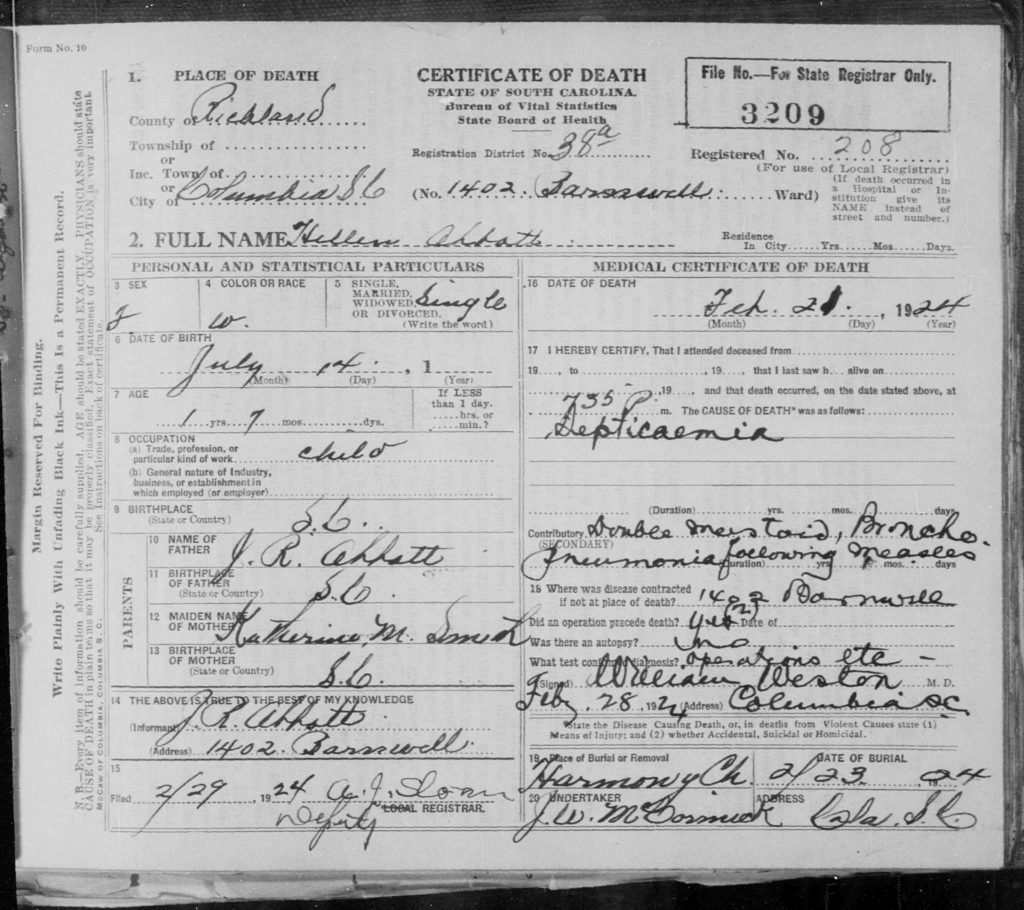 Form No. 10
1. PLACE OF DEATH
County of Richland
Township of
or
Inc. Town of
or
City of Columbia S C
CERTIFICATE OF DEATH
STATE OF SOUTH CAROLINA.
Bureau of Vital Statistics
State Board of Health
File No.—For State Registrar Only.
3209
Registration District No. 38a
Registered No. 208
(For use of Local Registrar)
(No. 1402 Barnwell Ward)
(If death occurred in
a Hospital or In-
stitution give its
NAME instead of
street and number.)
2. FULL NAME Hellen Abbott
Residence
In City Yrs. Mos. Days.
PERSONAL AND STATISTICAL PARTICULARS
3 SEX
f
4 COLOR OR RACE
w.
5 SINGLE,
MARRIED,
WIDOWED,
OR DIVORCED.
(Write the word)
Single
6 DATE OF BIRTH
July 14, 1
(Month) (Day) (Year)
7 AGE
1 yrs. 7 mos. dys.
If LESS
than 1 day.
hrs. or
min.?
8 OCCUPATION
(a) Trade, profession, or
particular kind of work child
(b) General nature of Industry,
business, or establishment in
which employed (or employer)
9 BIRTHPLACE
(State or Country) S.C.
PARENTS
10 NAME OF
FATHER J. R. Abbott
11 BIRTHPLACE
OF FATHER
(State or Country) S.C.
12 MAIDEN NAME
OF MOTHER Katherine M. Smith
13 BIRTHPLACE
OF MOTHER
(State or Country) S.C.
14 THE ABOVE IS TRUE TO THE BEST OF MY KNOWLEDGE
(Informant) J. R. Abbott
(Address) 1402 Barnwell
15
Filed 2/29 1924 A. J. Sloan
LOCAL REGISTRAR.
Deputy
MEDICAL CERTIFICATE OF DEATH
16 DATE OF DEATH
Feb. 21, 1924
(Month) (Day) (Year)
17 I HEREBY CERTIFY, That I attended deceased from
19, to , 19. that I last saw h alive on
,19 and that death occurred, on the date stated above, at
735 P m. The CAUSE OF DEATH* was as follows:
Septicaemia
(Duration) yrs. mos. days
Contributory Double mastoid, Broncho-
(SECONDARY)
Pneumonia following measles
(Duration) yrs. mos. days
18 Where was disease contracted
if not at place of death? 1402 Barnwell
Did an operation precede death? Yes (2) Date of
Was there an autopsy? no
What test confirmed diagnosis? operations etc -
(Signed) William Weston M. D.
Feby. 28 1924 (Address) Columbia S.C.
*State the Disease Causing Death, or, in deaths from Violent Causes state (1)
Means of Injury; and (2) whether Accidental, Suicidal or Homicidal.
19 Place of Burial or Removal
Harmony Ch.
DATE OF BURIAL
2/23 1924
20 UNDERTAKER
J. W. McCormick
ADDRESS
Cola. S.C.
Margin Reserved For Binding.
Write Plainly With Unfading Black Ink—This Is a Permanent Record.
N. B.—Every item of information should be carefully supplied. AGE should be stated EXACTLY. PHYSICIANS should state
CAUSE OF DEATH in plain terms so that it may be properly classified. Exact statement of OCCUPATION is very important.
See Instructions on back of certificate.
McCAW OF COLUMBIA, COLUMBIA S. C.